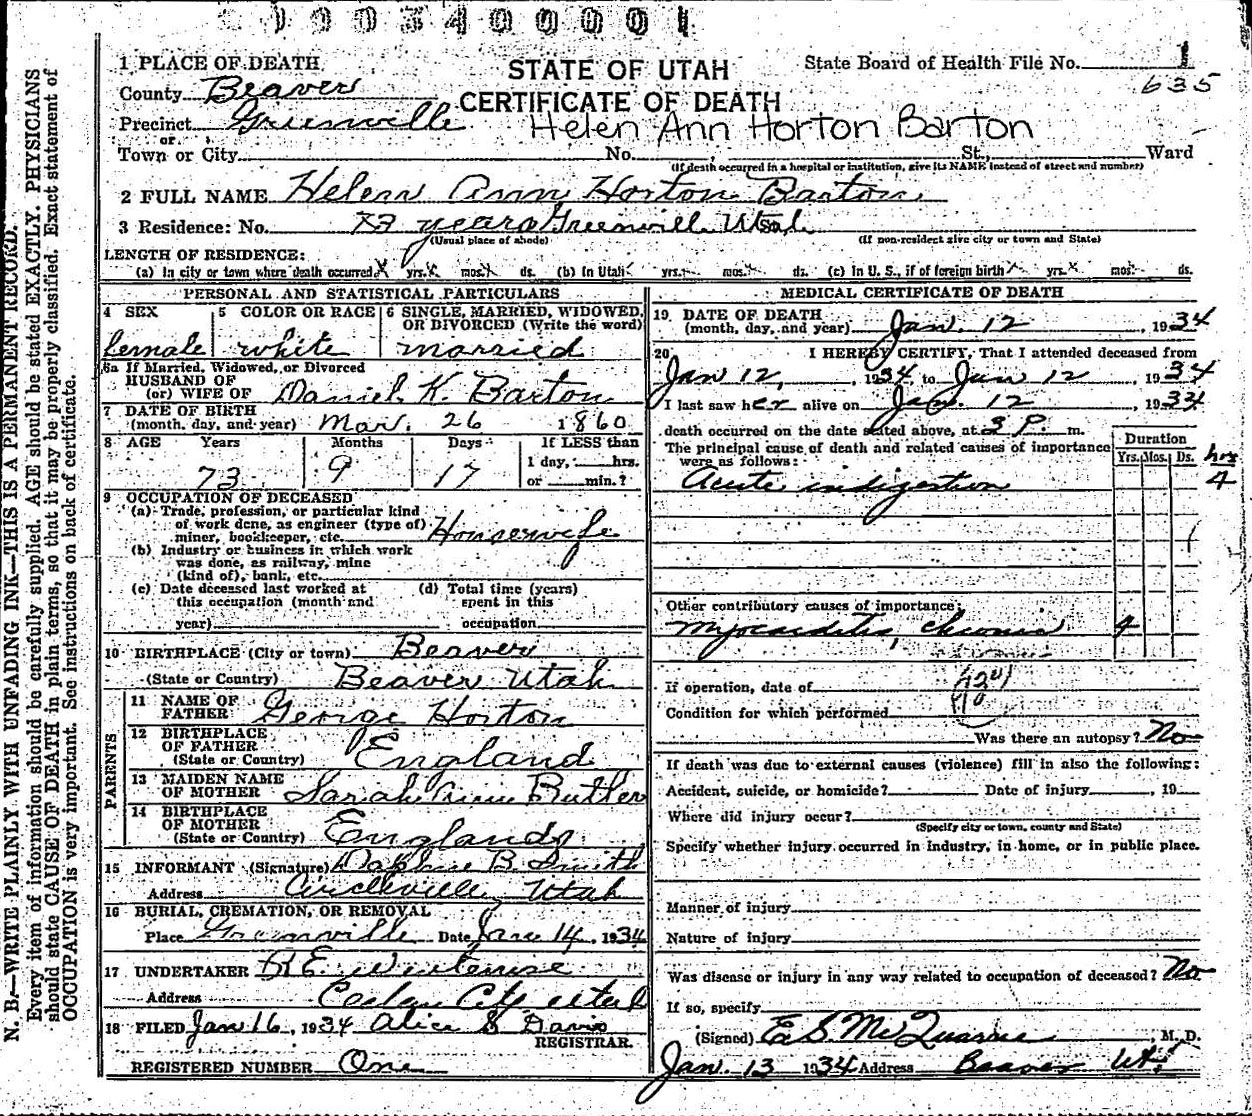 1903400001
1 PLACE OF DEATH
STATE OF UTAH
State Board of Health File No. 1
635
County Beaver
CERTIFICATE OF DEATH
Precinct Greenville
Helen Ann Horton Barton
or
Town or City No. , St., Ward
(If death occurred in a hospital or institution, give its NAME instead of street and number)
2 FULL NAME Helen Ann Horton Barton
3 Residence: No. years Greenville Utah
(Usual place of abode) (If non-resident give city or town and State)
LENGTH OF RESIDENCE:
(a) In city or town where death occurred yrs. mos. ds. (b) In Utah yrs. mos. ds. (c) In U. S., if of foreign birth yrs. mos. ds.
PERSONAL AND STATISTICAL PARTICULARS
4 SEX 5 COLOR OR RACE 6 SINGLE, MARRIED, WIDOWED,
OR DIVORCED (Write the word)
female white married
6a If Married, Widowed, or Divorced
HUSBAND OF
(or) WIFE OF Daniel K. Barton
7 DATE OF BIRTH
(month, day, and year) Mar. 26 1860
8 AGE Years Months Days If LESS than
1 day, hrs.
73 9 17 or min.?
9 OCCUPATION OF DECEASED
(a) Trade, profession, or particular kind
of work done, as engineer (type of)
miner, bookkeeper, etc. Housewife
(b) Industry or business in which work
was done, as railway, mine
(kind of), bank, etc.
(c) Date deceased last worked at (d) Total time (years)
this occupation (month and spent in this
year) occupation
10 BIRTHPLACE (City or town) Beaver
(State or Country) Beaver Utah
PARENTS
11 NAME OF
FATHER George Horton
12 BIRTHPLACE
OF FATHER
(State or Country) England
13 MAIDEN NAME
OF MOTHER Sariah Ann Butler
14 BIRTHPLACE
OF MOTHER
(State or Country) England
15 INFORMANT (Signature) Daphne B. Smith
Address Circleville, Utah
16 BURIAL, CREMATION, OR REMOVAL
Place Greenville Date Jan 14, 1934
17 UNDERTAKER
Address Cedar City, Utah
18 FILED Jan 16, 1934 Alice S Davis
REGISTRAR.
REGISTERED NUMBER One
MEDICAL CERTIFICATE OF DEATH
19 DATE OF DEATH
(month, day, and year) Jan. 12, 1934
20 I HEREBY CERTIFY, That I attended deceased from
Jan 12, 1934, to Jan 12 1934
I last saw her alive on Jan. 12 1934
death occurred on the date stated above, at 3 P. m.
The principal cause of death and related causes of importance
were as follows:
Duration
Yrs. Mos. Ds. hrs
Acute indigestion 4
Other contributory causes of importance:
Myocarditis, chronic 4
If operation, date of
Condition for which performed
Was there an autopsy? No
If death was due to external causes (violence) fill in also the following:
Accident, suicide, or homicide? Date of injury , 19
Where did injury occur?
(Specify city or town, county and State)
Specify whether injury occurred in industry, in home, or in public place.
Manner of injury
Nature of injury
Was disease or injury in any way related to occupation of deceased? No
If so, specify
(Signed) E. S. McQuarrie, M. D.
Jan. 13 1934 Address Beaver Ut.
N. B.—WRITE PLAINLY WITH UNFADING INK—THIS IS A PERMANENT RECORD.
Every item of information should be carefully supplied. AGE should be stated EXACTLY. PHYSICIANS
should state CAUSE OF DEATH in plain terms, so that it may be properly classified. Exact statement of
OCCUPATION is very important. See instructions on back of certificate.